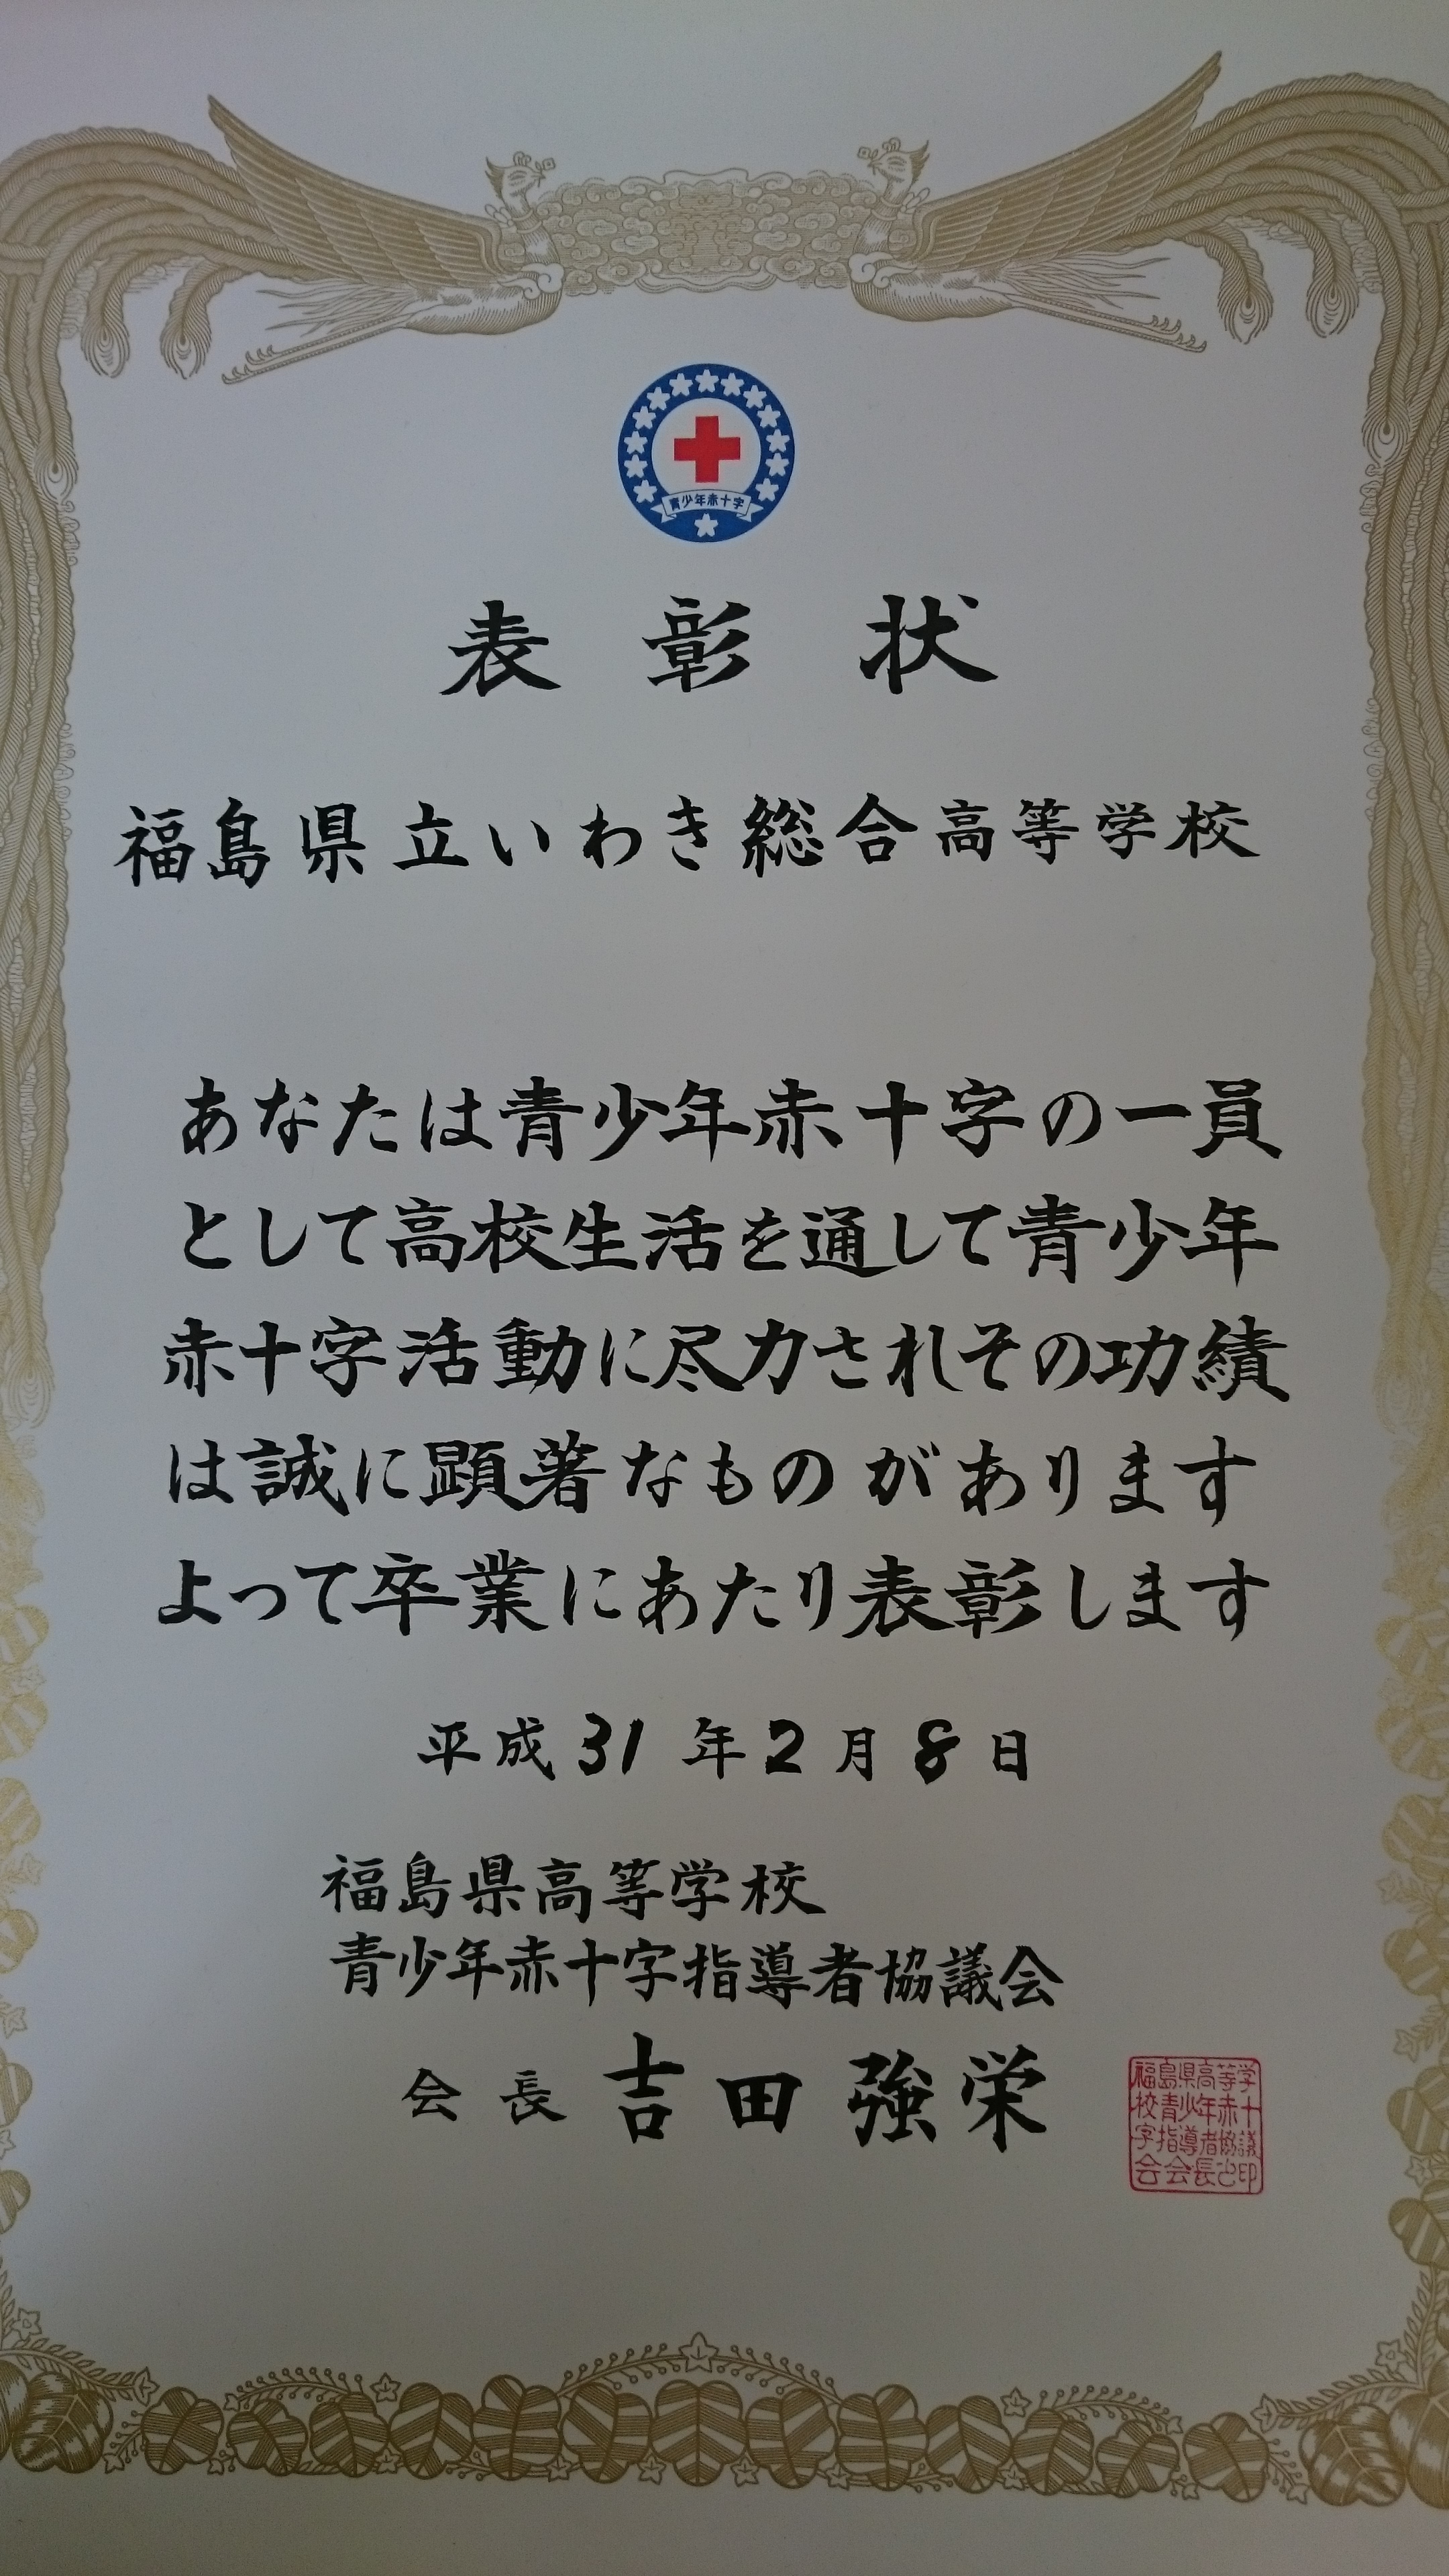 青少年赤十字
表彰状
福島県立いわき総合高等学校
あなたは青少年赤十字の一員
として高校生活を通して青少年
赤十字活動に尽力されその功績
は誠に顕著なものがあります
よって卒業にあたり表彰します
平成31年2月8日
福島県高等学校
青少年赤十字指導者協議会
会長 吉田強栄
福島県高等学
校青少年赤十
字指導者協議
会会長之印